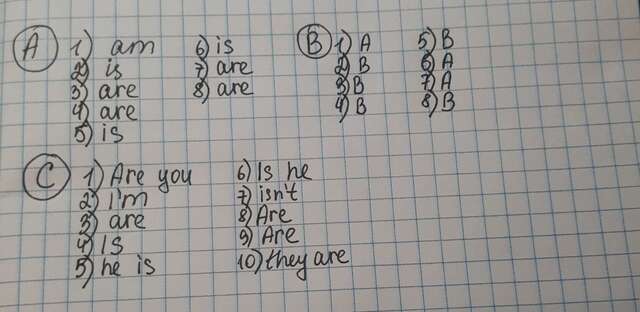 A 1) am 6) is B 1) A 5) B
2) is 7) are 2) B 6) A
3) are 8) are 3) B 7) A
4) are 4) B 8) B
5) is
C 1) Are you 6) Is he
2) I'm 7) isn't
3) are 8) Are
4) Is 9) Are
5) he is 10) they are